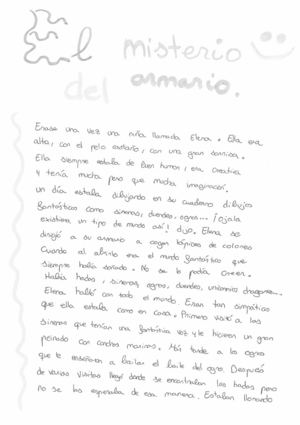 El misterio
del armario.
Erase una vez una niña llamada Elena. Ella era
alta, con el pelo castaño, con una gran sonrisa.
Ella siempre estaba de buen humor, era creativa
y tenía mucha pero que mucha imaginación.
un día estaba dibujando en su cuaderno dibujos
fantásticos como sirenas, duendes, ogros... ¡Ojala
existiera un tipo de mundo así! dijo. Elena se
dirijió a su armario a coger lápices de colores
Cuando al abrirlo era el mundo fantástico que
siempre había soñado. No se lo podía creer.
Había hadas, sirenas, ogros, duendes, unicornios
Elena habló con todo el mundo. Eran tan simpáticos
que ella estaba como en casa. Primero visitó a las
sirenas que tenían una fantástica voz y le hicieron un gran
peinado con conchas marinas. Más tarde a los ogros
que le enseñaron a bailar el baile del ogro. Después
de varias visitas llegó donde se encontraban las hadas pero
no se las esperaba de esa manera. Estaban llorando